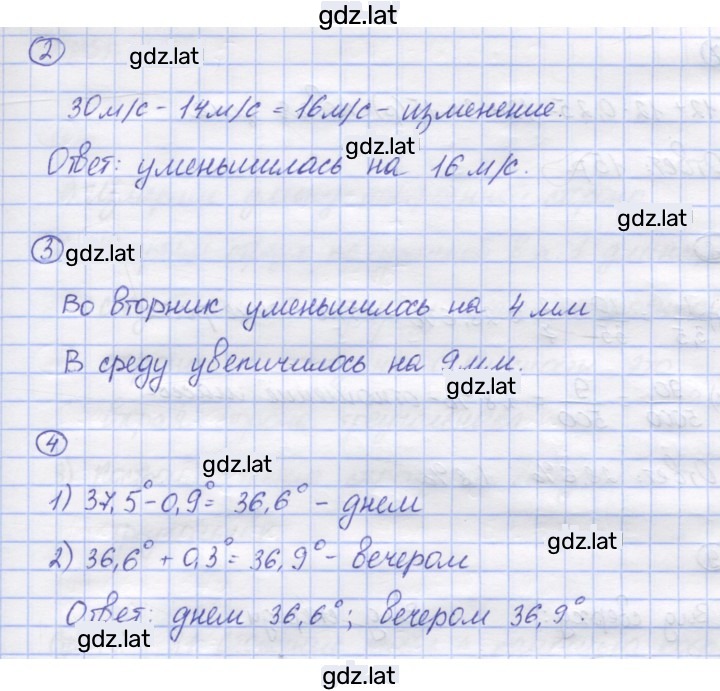 gdz.lat
2 gdz.lat
30м/с - 14м/с = 16м/с - изменение.
gdz.lat
Ответ: уменьшилась на 16 м/с.
gdz.lat
3 gdz.lat
Во вторник уменьшилось на 4 мм
В среду увеличилось на 9 мм.
gdz.lat
4
gdz.lat
1) 37,5° - 0,9° = 36,6° - днем
gdz.lat
2) 36,6° + 0,3° = 36,9° - вечером
Ответ: днем 36,6°; вечером 36,9°.
gdz.lat
gdz.lat